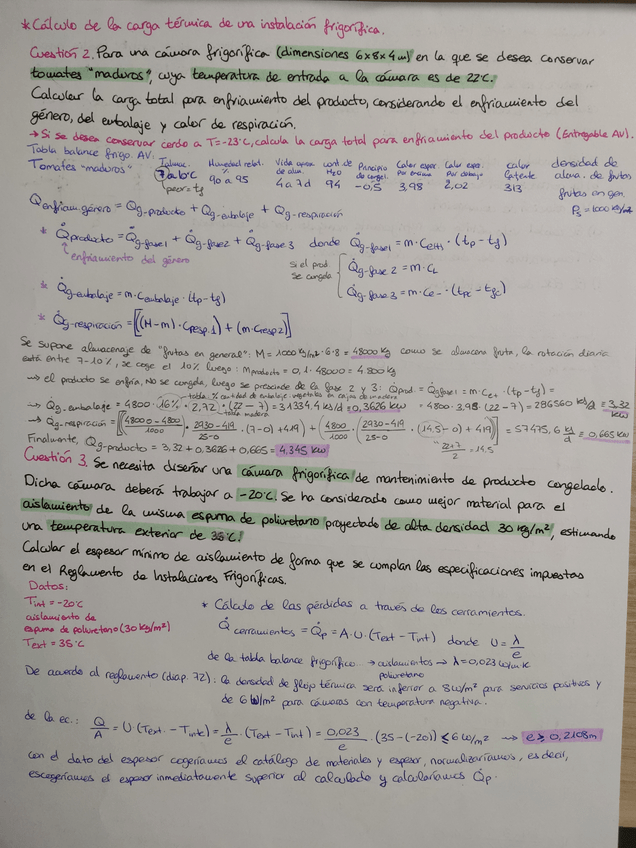 * Cálculo de la carga térmica de una instalación frigorífica.
Cuestión 2. Para una cámara frigorífica (dimensiones 6x8x4m) en la que se desea conservar
tomates "maduros", cuya temperatura de entrada a la cámara es de 22ºC.
Calcular la carga total para enfriamiento del producto, considerando el enfriamiento del
género, del embalaje y calor de respiración.
→ Si se desea conservar cerdo a T=-23ºC, calcula la carga total para enfriamiento del producto (Entregable AV).
Tabla balance frigo. AV.
Talmac. Humedad relat. % Vida aprox de alm. cont de H2O Principio de congel. Calor espec Por encima Calor espe. Por debajo calor latente densidad de alma. de frutas
Tomates "maduros" 7 a 10ºC 90 a 95 4 a 7d 94 -0,5 3,98 2,02 313 frutas en gen.
peor = tf
ρs = 1000 kg/m²
Q enfriam. género = Qg-producto + Qg-embalaje + Qg-respiración
* Q̇producto = Q̇g-fase1 + Q̇g-fase2 + Q̇g-fase3 donde Q̇g-fase1 = m·Ce(+)·(tp-tf)
enfriamiento del género
si el prod se congela
Q̇g-fase2 = m·CL
Q̇g-fase3 = m·Ce-·(tpc-tfc)
* Q̇g-embalaje = m·Cembalaje·(tp-tf)
* Q̇g-respiración = [((M-m)·Cresp.1) + (m·Cresp2)]
Se supone almacenaje de "frutas en general": M = 1000 kg/m²·6·8 = 48000 kg como se almacena fruta, la rotación diaria
está entre 7-10%, se coge el 10% luego: Mproducto = 0,1·48000 = 4800 kg
→ el producto se enfría, NO se congela, luego se prescinde de la fase 2 y 3: Qprod = Q̇gfase1 = m·Ce+·(tp-tf) =
tabla: % cantidad de embalaje: vegetales en cajas de madera
= 4800·3,98·(22-7) = 286560 kJ/d = 3,32 kW
→ Q̇g-embalaje = 4800·16%·2,72·(22-7) = 31334,4 kJ/d = 0,3626 kW
tabla madera
→ Q̇g-respiración = [[48000-4800/1000·(2930-419/25-0·(7-0)+419)] + (4800/1000·(2930-419/25-0·(14,5-0)+419)] = 57475,6 kJ/d = 0,665 kW
22+7/2 = 14,5
Finalmente, Qg-producto = 3,32+0,3626+0,665 = 4,345 kW
Cuestión 3. Se necesita diseñar una cámara frigorífica de mantenimiento de producto congelado.
Dicha cámara deberá trabajar a -20ºC. Se ha considerado como mejor material para el
aislamiento de la misma espuma de poliuretano proyectado de alta densidad 30 kg/m², estimando
una temperatura exterior de 35ºC.
Calcular el espesor mínimo de aislamiento de forma que se cumplan las especificaciones impuestas
en el Reglamento de Instalaciones Frigoríficas.
Datos:
Tint = -20ºC
aislamiento de
espuma de poliuretano (30 kg/m²)
Text = 35ºC
* Cálculo de las pérdidas a través de los cerramientos.
Q̇cerramientos = Q̇p = A·U·(Text-Tint) donde U = λ/e
de la tabla balance frigorífico → aislamientos → λ = 0,023 w/m·K
poliuretano
De acuerdo al reglamento (diap. 72): la densidad de flujo térmica será inferior a 8w/m² para servicios positivos y
de 6w/m² para cámaras con temperatura negativa.
de la ec.: Q/A = U·(Text.-Tint) = λ/e·(Text-Tint) = 0,023/e·(35-(-20)) ≤ 6w/m² → e ≥ 0,2108m
con el dato del espesor cogeríamos el catálogo de materiales y espesor, normalizaríamos, es decir,
escogeríamos el espesor inmediatamente superior al calculado y calcularíamos Q̇p.